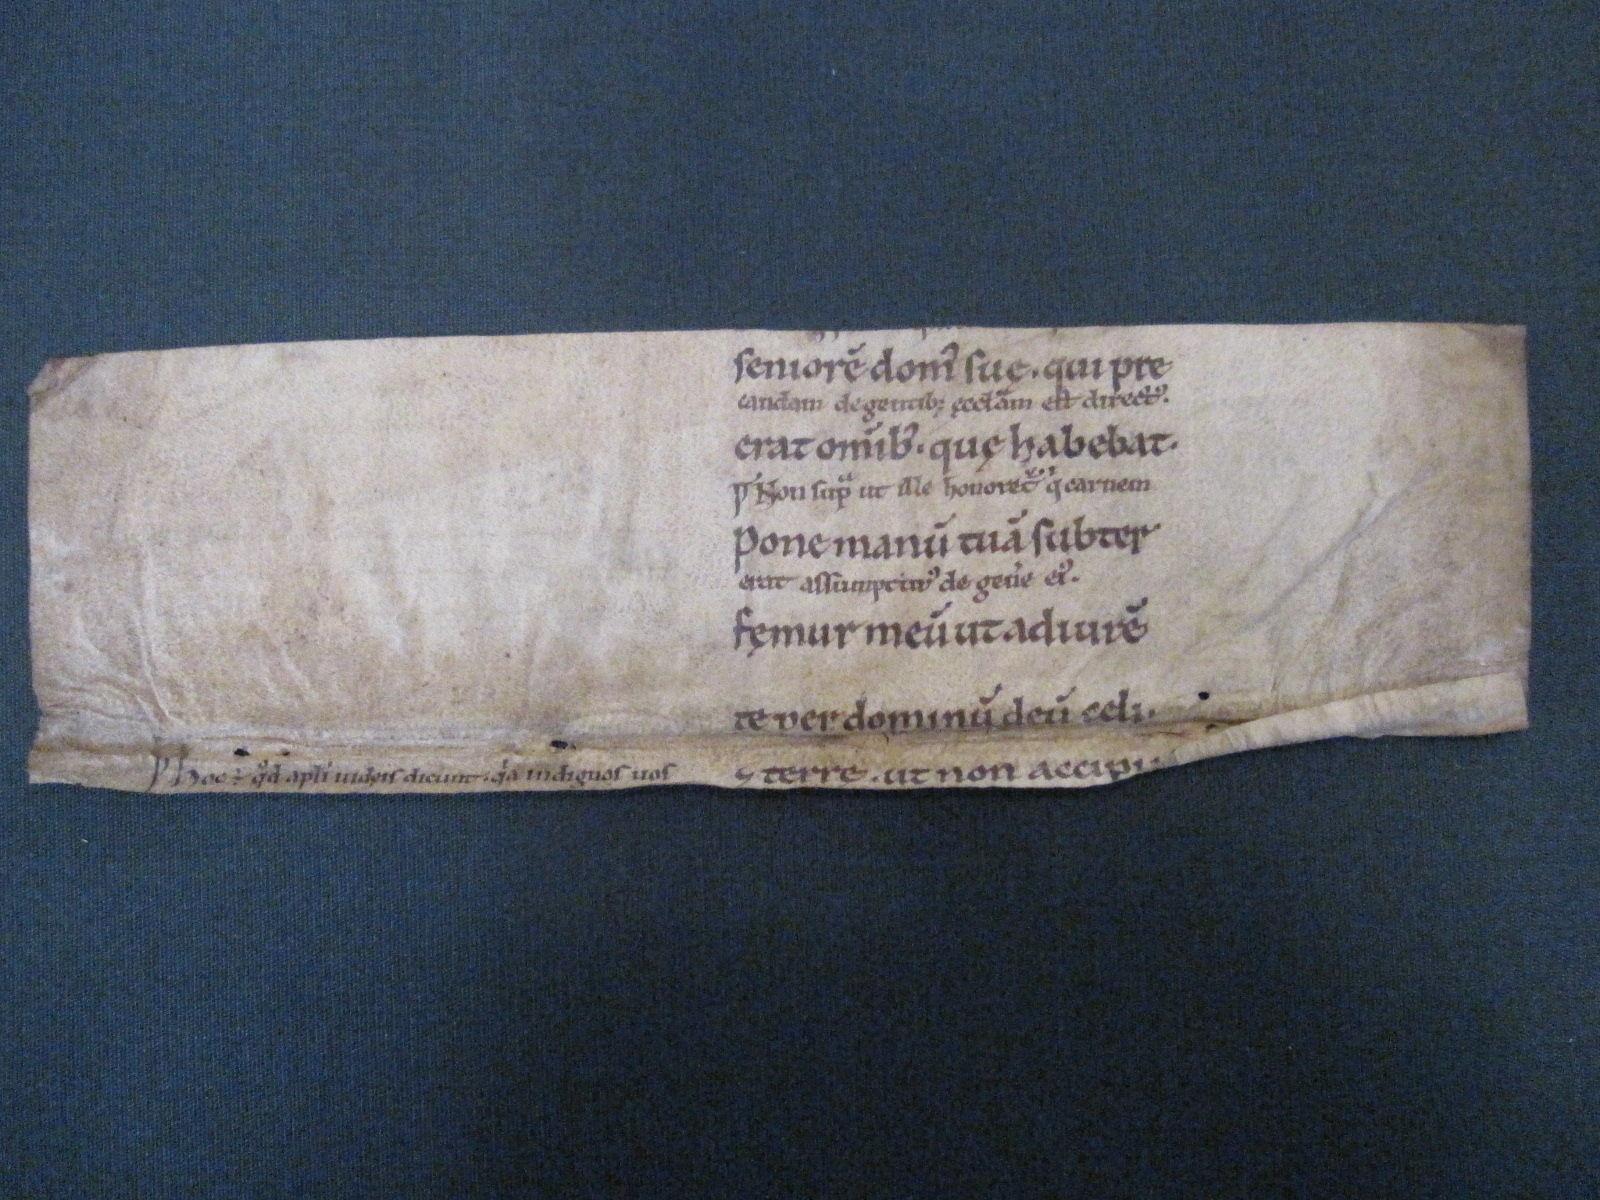 seniorē dom̄ suę. qui pre
candam de gentib; ęcclām est direct᷒.
erat om̄ib᷒. quę habebat.
Non sup̄ ut ille honoret᷒ carnem
pone manū tuā subter
erat assumptur᷒ de gen̄e ei᷒.
fęmur meū ut adiurē
te per dominū deū cęli.
⁊ terrę. ut non accipi
hoc ÷ qd̄ apli iudęis dicunt. qa indignos uos